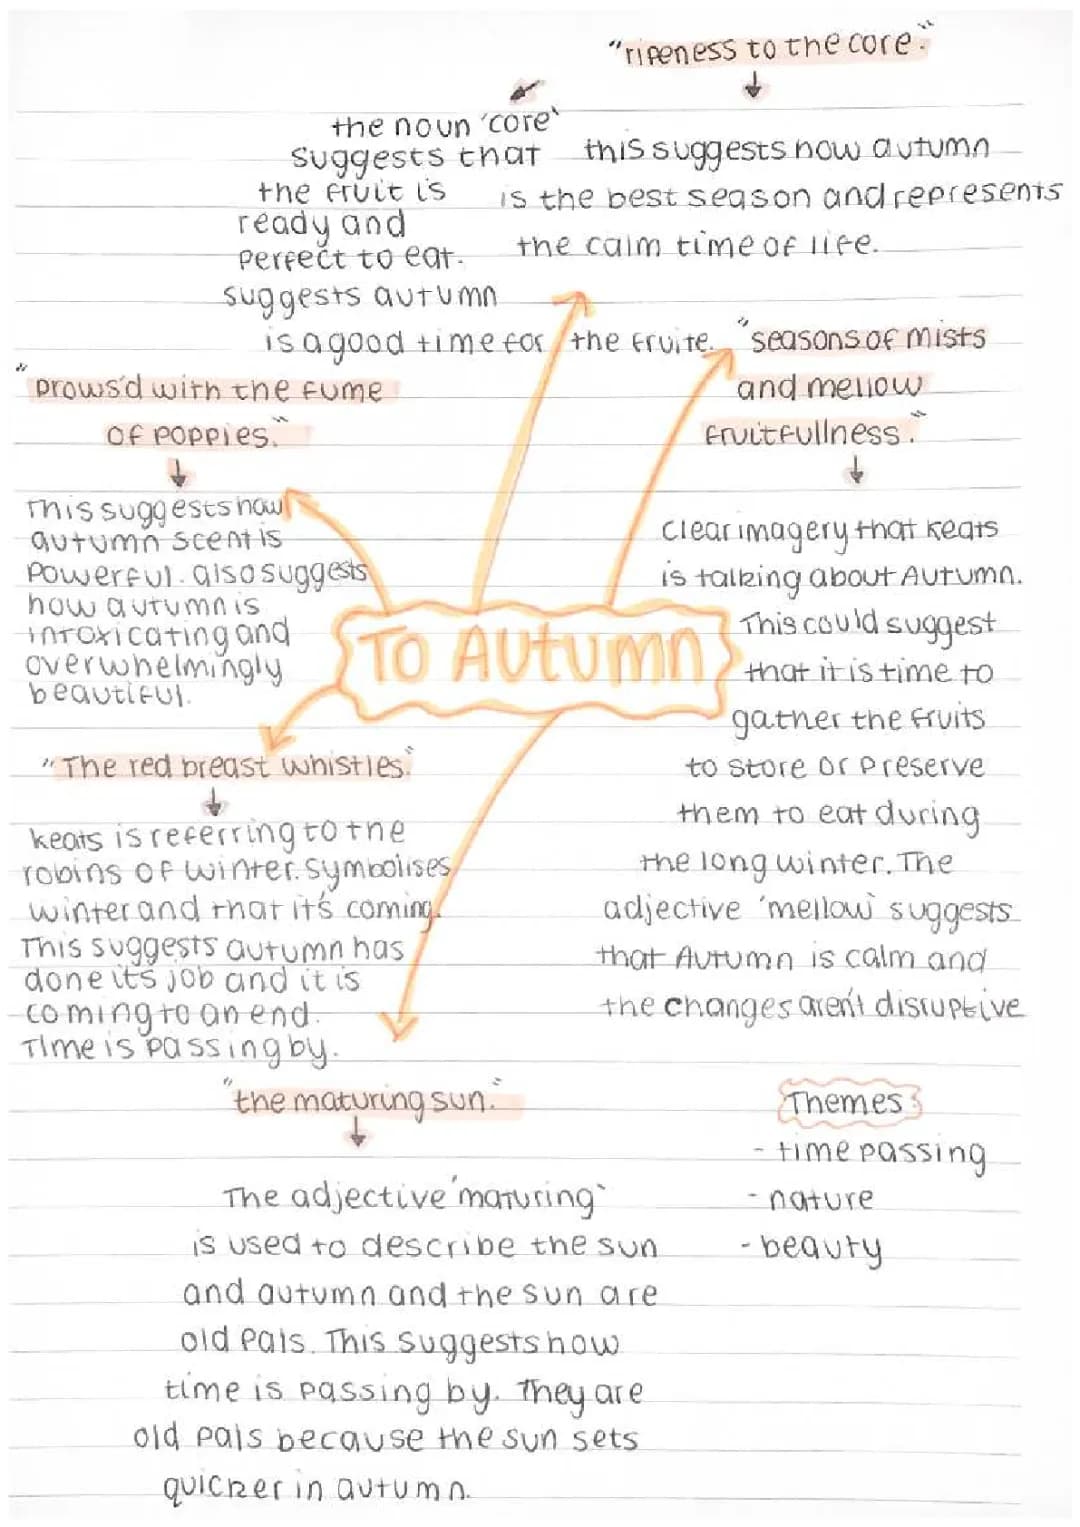 "ripeness to the core."
the noun 'core'
suggests that
the fruit is
ready and
perfect to eat.
suggests autumn
is a good time for the fruite.
this suggests how autumn
is the best season and represents
the calm time of life.
"seasons of mists
and mellow
fruitfullness."
clear imagery that keats
is talking about Autumn.
This could suggest
that it is time to
gather the fruits
to store or preserve
them to eat during
the long winter. The
adjective 'mellow' suggests
that Autumn is calm and
the changes aren't disruptive
"Drows'd with the fume
of poppies."
This suggests how
autumn scent is
powerful. also suggests
how autumn is
intoxicating and
overwhelmingly
beautiful.
To Autumn
"The red breast whistles."
keats is referring to the
robins of winter. symbolises
winter and that it's coming.
This suggests autumn has
done its job and it is
coming to an end.
Time is passing by.
"the maturing sun."
The adjective 'maturing'
is used to describe the sun
and autumn and the sun are
old pals. This suggests how
time is passing by. They are
old pals because the sun sets
quicker in autumn.
Themes:
- time passing
- nature
- beauty